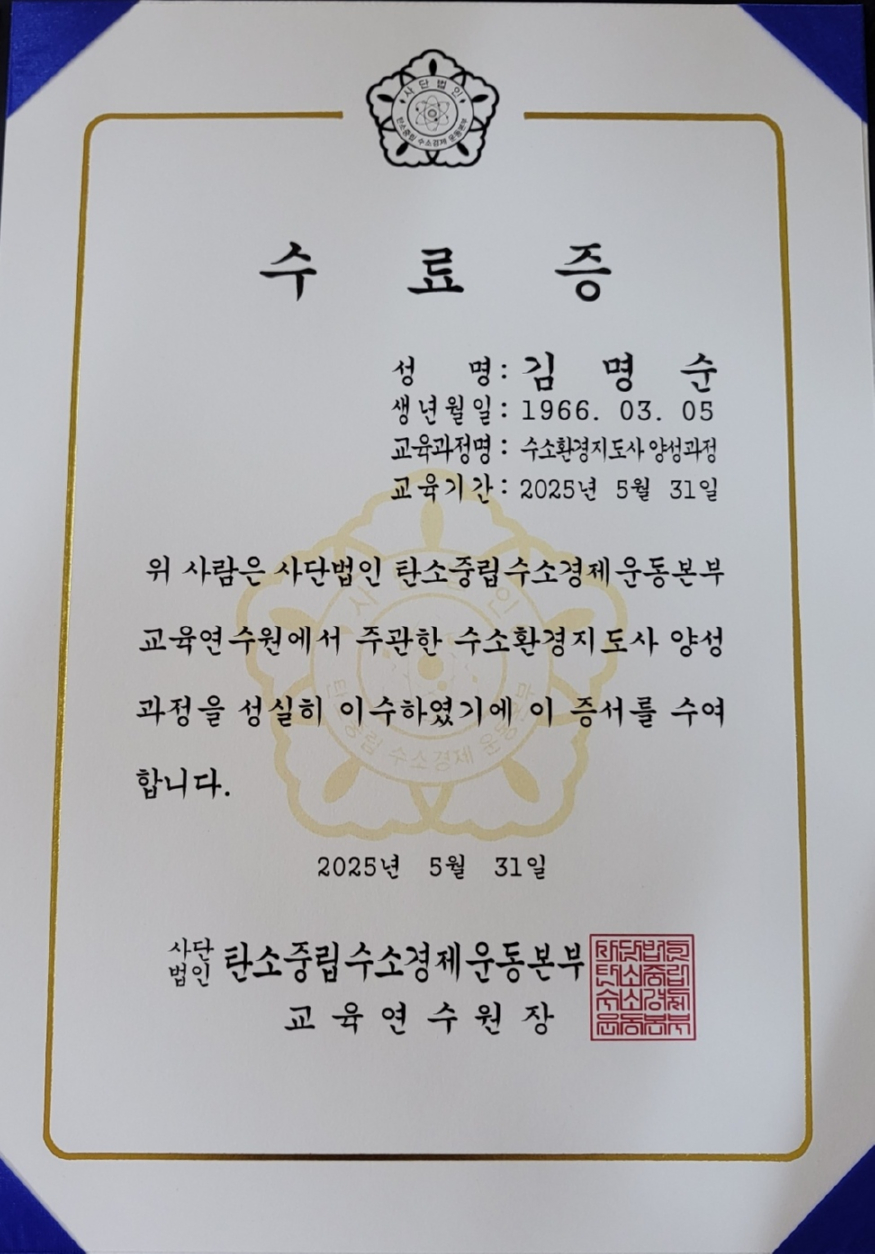 사단법인
탄소중립 수소경제 운동본부
수 료 증
성 명: 김 명 순
생년월일: 1966. 03. 05
교육과정명: 수소환경지도사 양성과정
교육기간: 2025년 5월 31일
위 사람은 사단법인 탄소중립수소경제운동본부
교육연수원에서 주관한 수소환경지도사 양성
과정을 성실히 이수하였기에 이 증서를 수여
합니다.
2025년 5월 31일
사단법인 탄소중립수소경제운동본부
교육연수원장
사단법인
탄소중립
수소경제
운동본부